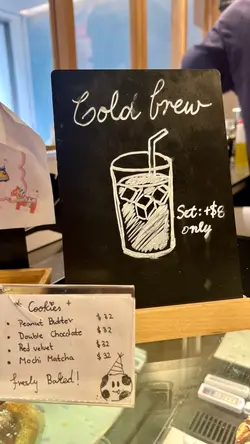 Cold brew
Set: +$8
only
Cookies
• Peanut Butter $32
• Double Chocolate $32
• Red velvet $32
• Mochi Matcha $32
freshly Baked!